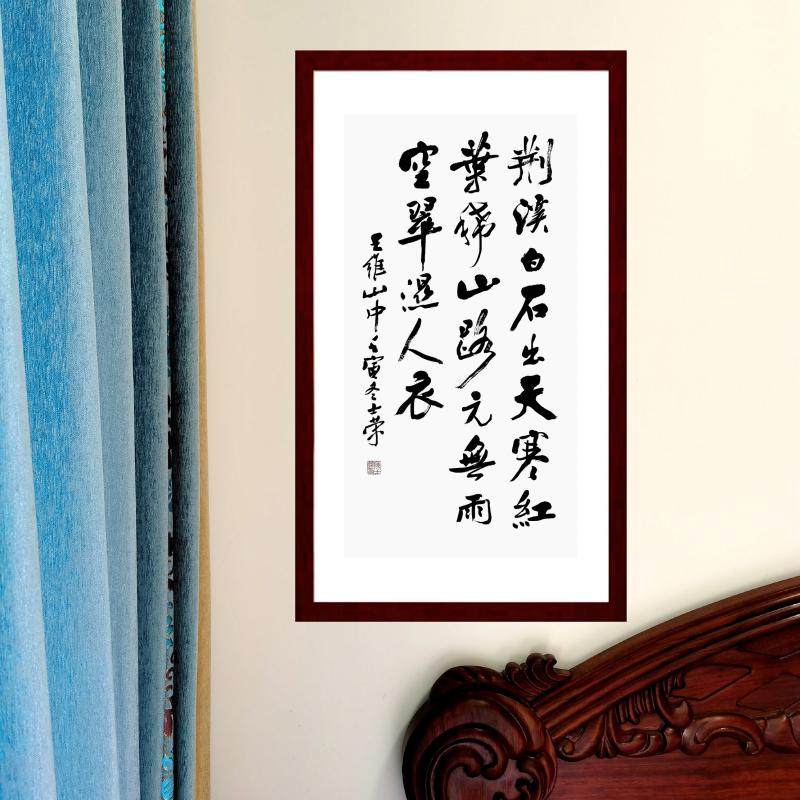 荆溪白石出天寒紅
葉稀山路元無雨
空翠濕人衣
王維山中壬寅冬士荣